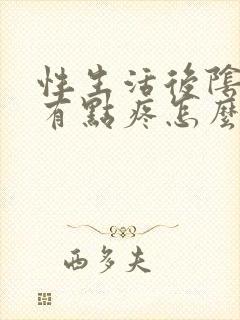 性生活後陰
有點疼怎麼
西多夫